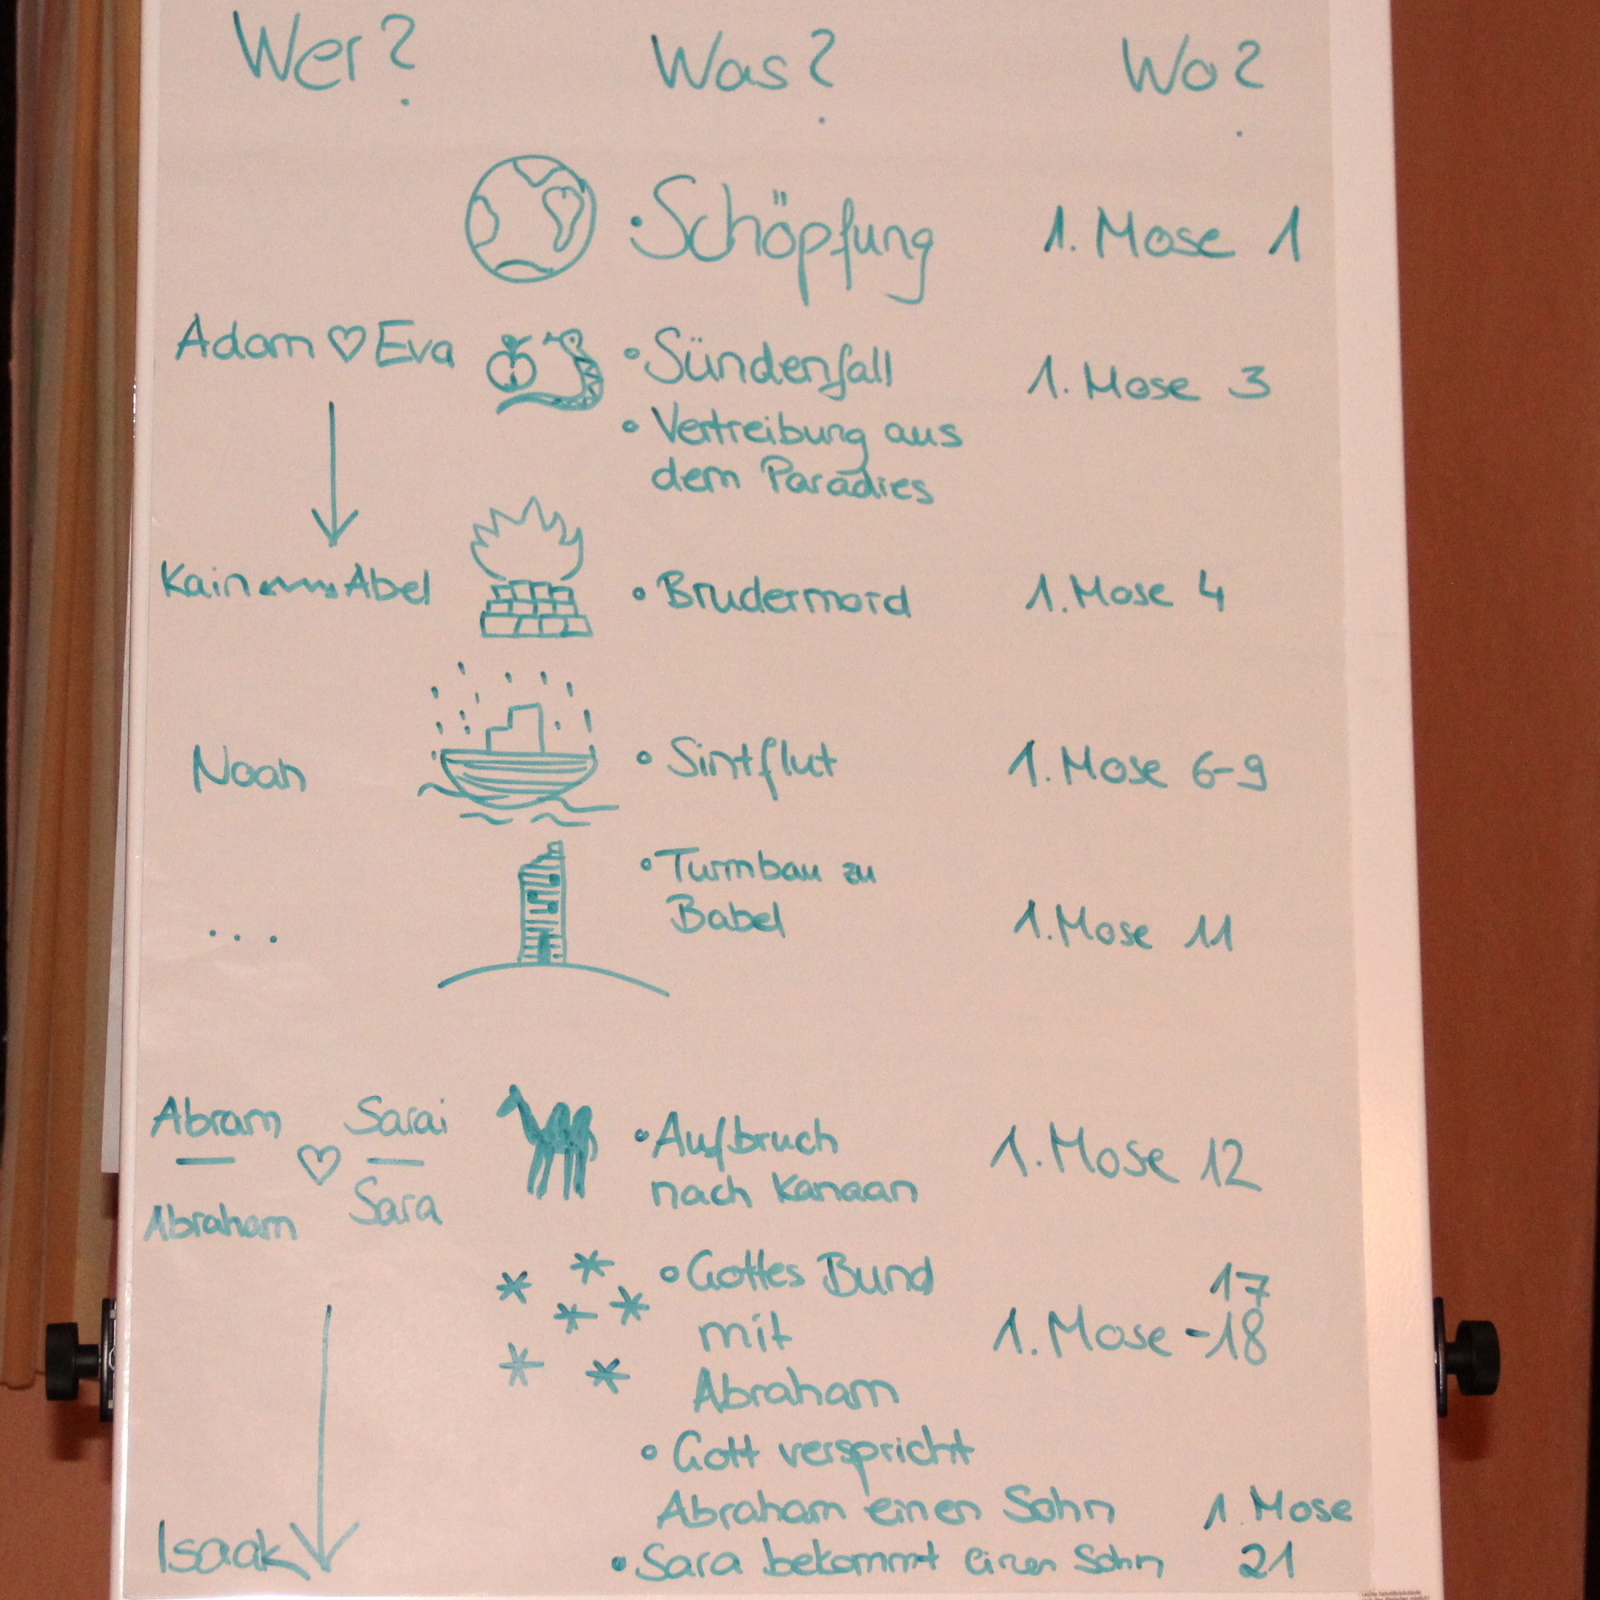 Wer? Was? Wo?
• Schöpfung 1. Mose 1
Adam ♡ Eva • Sündenfall 1. Mose 3
• Vertreibung aus
dem Paradies
Kain Abel • Brudermord 1. Mose 4
Noah • Sintflut 1. Mose 6-9
• Turmbau zu
Babel 1. Mose 11
...
Abram Sarai • Aufbruch 1. Mose 12
♡
Abraham Sara nach Kanaan
• Gottes Bund 17
mit 1. Mose -18
Abraham
• Gott verspricht
Abraham einen Sohn 1 Mose
Isaak • Sara bekommt einen Sohn 21